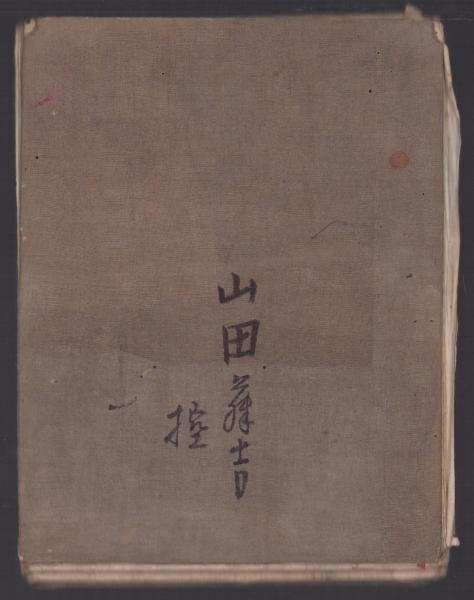 山田藤吉
控